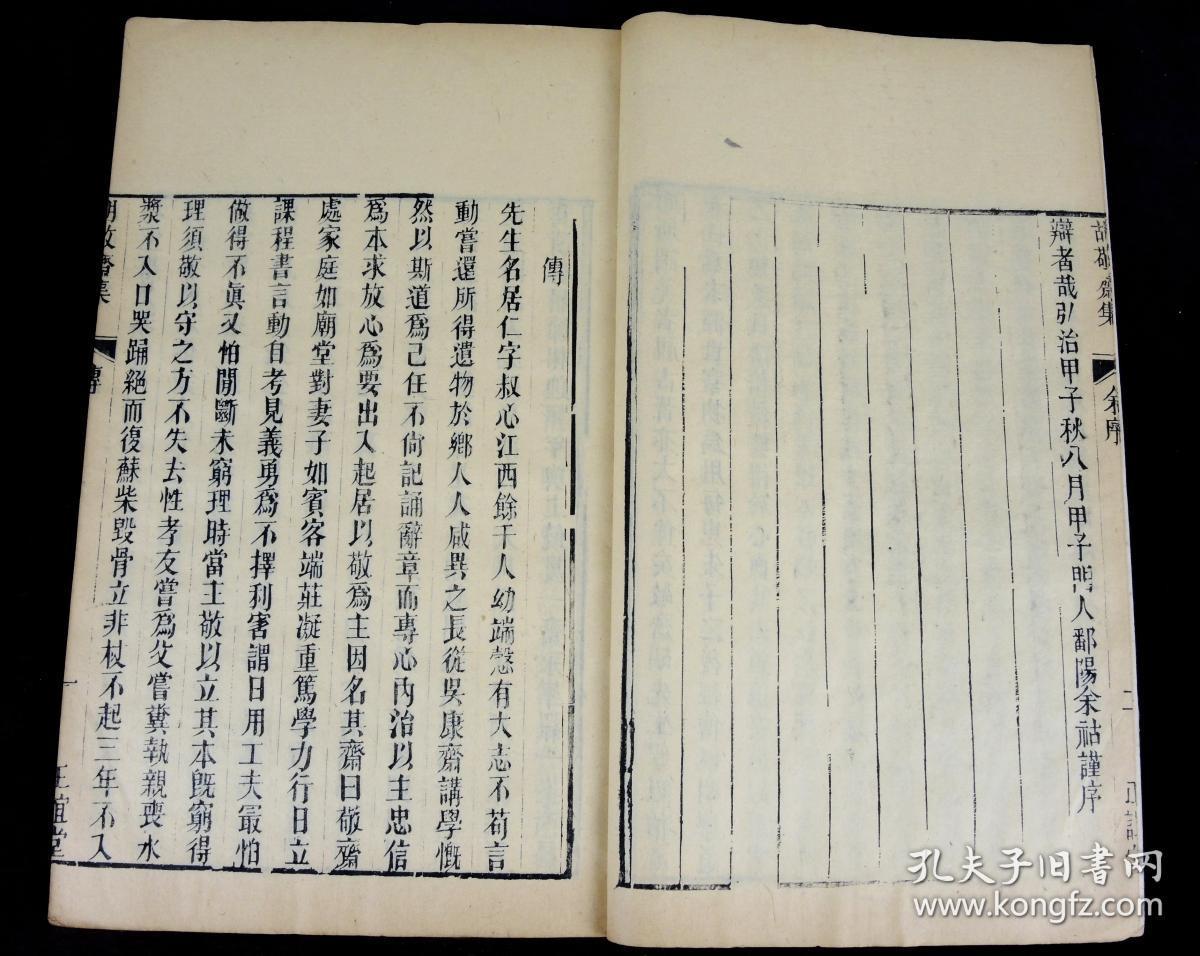 胡敬齋集
余序
二
辯者哉弘治甲子秋八月甲子門人鄱陽余祜謹序
傳
先生名居仁字叔心江西餘干人幼端慤有大志不苟言
動嘗還所得遺物於鄉人人咸異之長從吳康齋講學慨
然以斯道爲己任不尙記誦辭章而專心內治以主忠信
爲本求放心爲要出入起居以敬爲主因名其齋曰敬齋
處家庭如廟堂對妻子如賓客端莊凝重篤學力行日立
課程書言動自考見義勇爲不擇利害謂日用工夫最怕
做得不眞又怕閒斷未窮理時當主敬以立其本旣窮得
理須敬以守之方不失去性孝友嘗爲父嘗糞執親喪水
漿不入口哭踊絕而復蘇柴毀骨立非杖不起三年不入
胡敬齋集
傳
一
正誼堂
孔夫子旧书网
www.kongfz.com